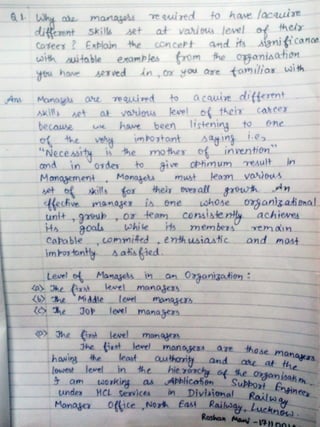 Q.1. Why are managers required to have/acquire
different skills set at various level of their
career? Explain the concept and its significance
with suitable examples from the organisation
you have served in, or you are familiar with
Ans Managers are required to acquire different
skills set at various level of their career
because we have been listening to one
of the very important saying i.e.
"Necessity is the mother of invention"
and in order to give optimum result in
Management, Managers must learn various
set of skills for their overall growth. An
effective manager is one whose organizational
unit, group, or team consistently achieves
its goals while its members remain
capable, commited, enthusiastic and most
importantly satisfied.
Level of Managers in an Organization:
(a) The first level managers
(b) The Middle level managers
(c) The Top level managers
(a) The first level managers
The first level managers are those managers
having the least authority and are at the
lowest level in the hierarchy of the organisation.
I am working as Application Support Engineer
under HCL Services in Divisional Railway
Manager Office, North East Railway, Lucknow.
Roshan